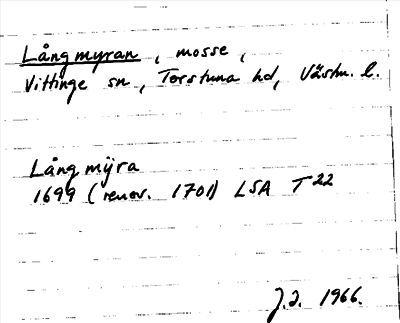 Långmyran, mosse,
Vittinge sn, Torstuna hd, Västm. l.
Lång mÿra
1699 (renov. 1701) LSA T 22
J.J. 1966.